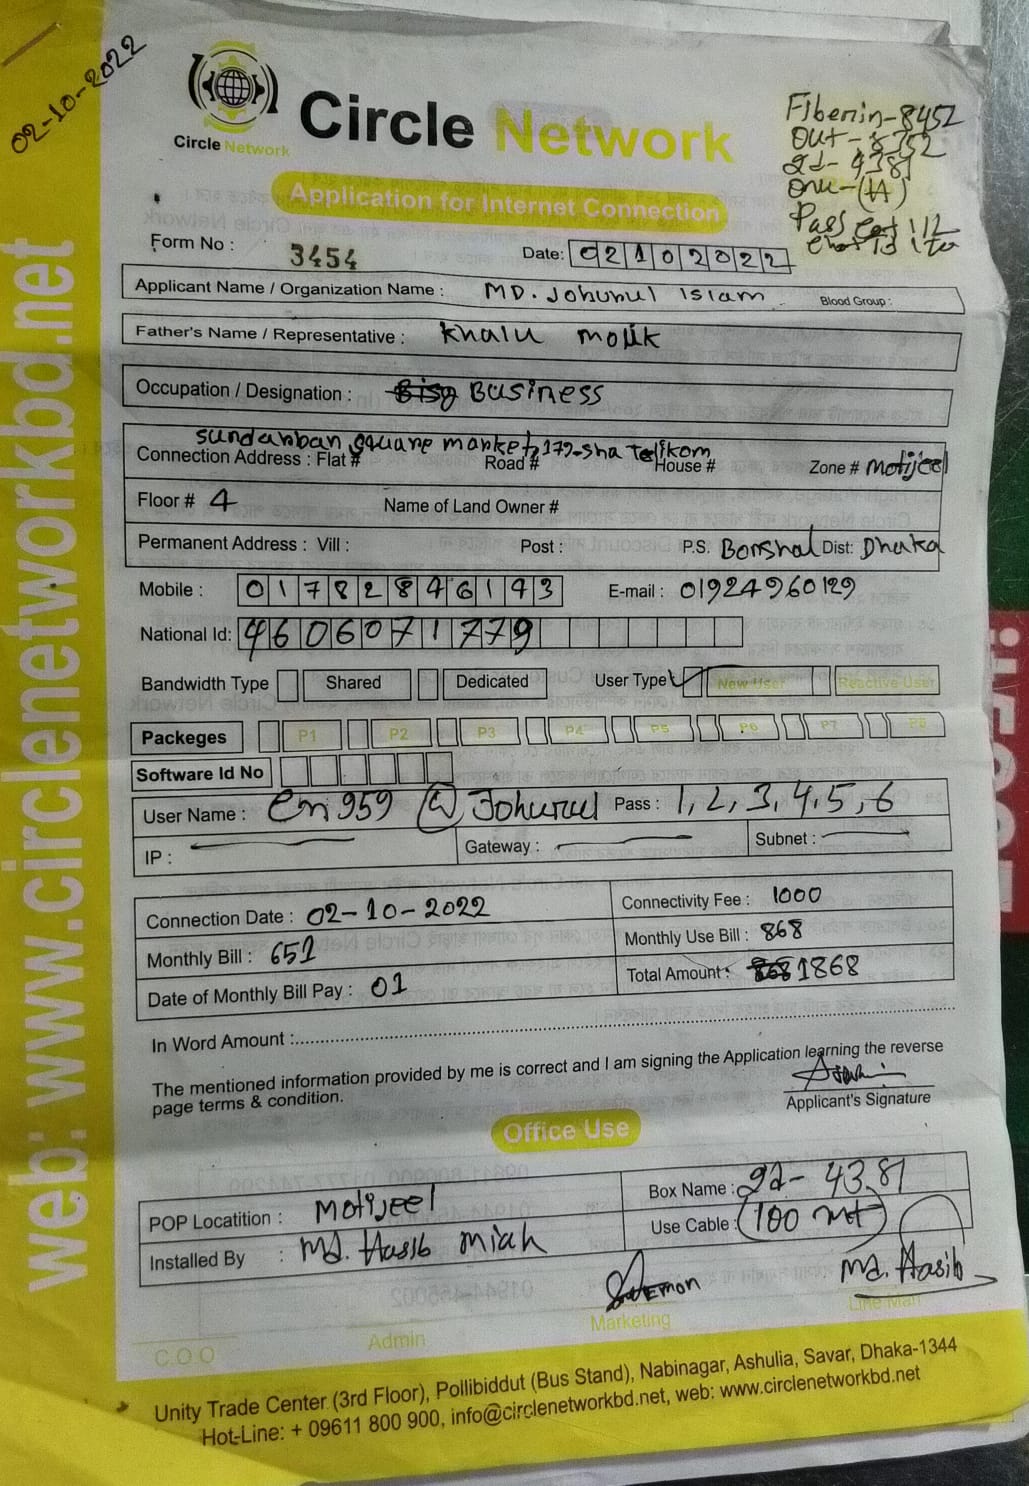 02-10-2022
Circle Network
Circle Network
Application for Internet Connection
Fiber in-8452
Out-8352
2d-4381
onu-(HA)
Pass
Form No : 3454
Date: 02102022
Applicant Name / Organization Name : MD. Johurul Islam Blood Group :
Father's Name / Representative : Khalu molik
Occupation / Designation : Business
sundarban square market, 179-sha Telikom
Connection Address : Flat # Road # House # Zone # Motijeel
Floor # 4 Name of Land Owner #
Permanent Address : Vill : Post : P.S. Bonshal Dist: Dhaka
Mobile : 01782846143 E-mail : 01924960129
National Id: 4606071779
Bandwidth Type Shared Dedicated User Type New User Reactive User
Packeges P1 P2 P3 P4 P5 P6 P7 P8
Software Id No
User Name : Cn959 @ Johurul Pass : 1,2,3,4,5,6
IP : Gateway : Subnet :
Connection Date : 02-10-2022 Connectivity Fee : 1000
Monthly Bill : 651 Monthly Use Bill : 868
Date of Monthly Bill Pay : 01 Total Amount : 868 1868
In Word Amount :
The mentioned information provided by me is correct and I am signing the Application learning the reverse
page terms & condition.
Applicant's Signature
Office Use
POP Locatition : Motijeel Box Name : 2d- 4381
Installed By : Md. Hasib miah Use Cable : 100 mt
Md. Hasib
C.O.O Admin Marketing Line Man
Unity Trade Center (3rd Floor), Pollibiddut (Bus Stand), Nabinagar, Ashulia, Savar, Dhaka-1344
Hot-Line: + 09611 800 900, info@circlenetworkbd.net, web: www.circlenetworkbd.net
web: www.circlenetworkbd.net